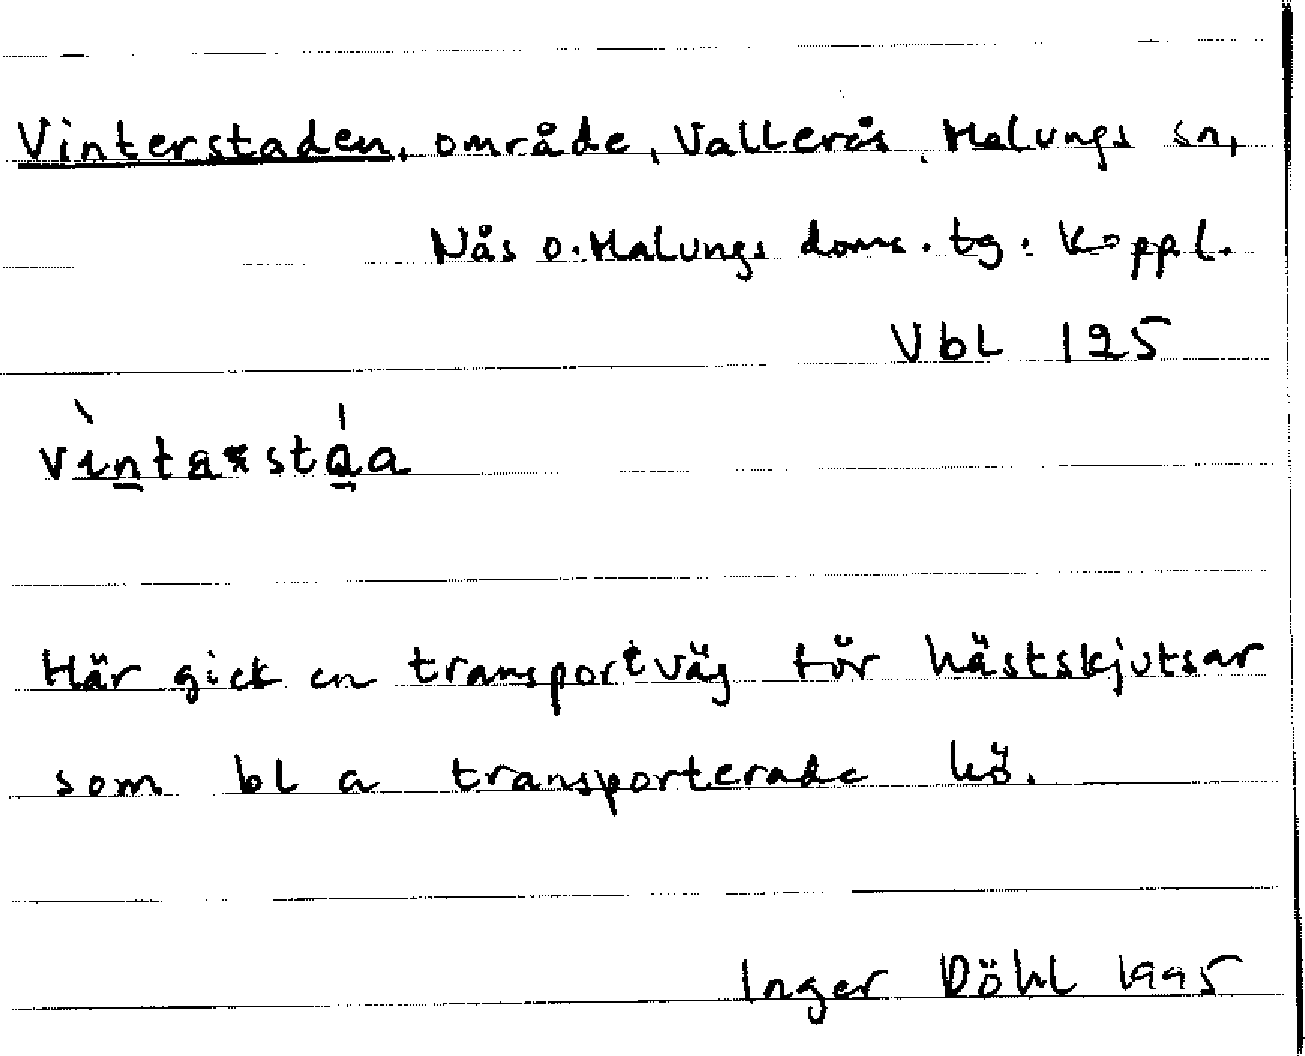 Vinterstaden, område, Vallerås, Malungs sn,
Nås o. Malungs doms. tg: Koppl.
Vbl 125
Här gick en transportväg för hästskjutsar
som bl a transporterade hö.
Inger Döhl 1995